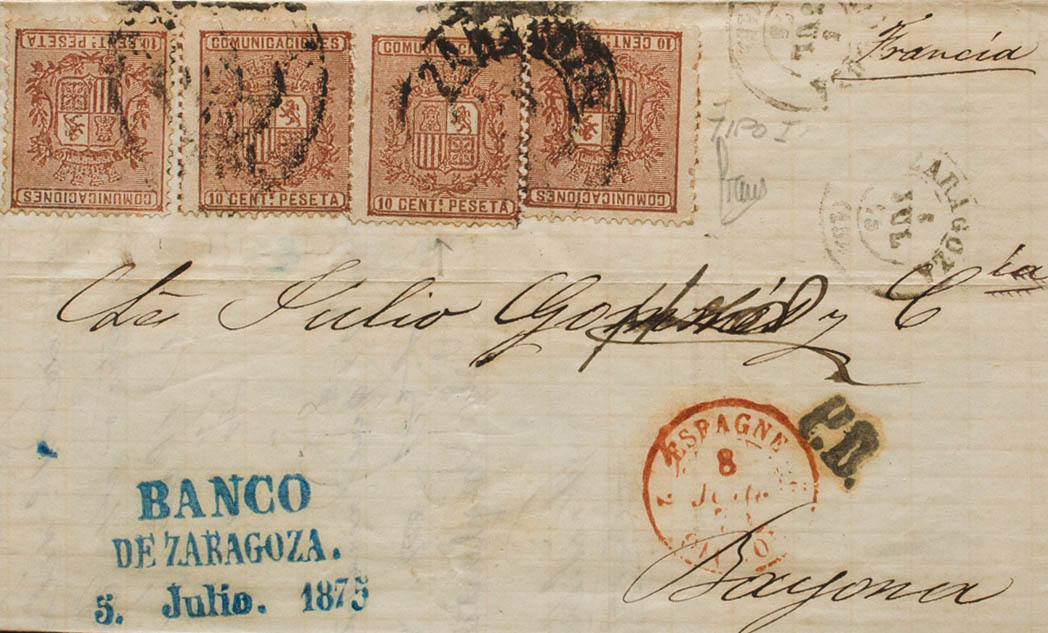 10 CENT.ˢ PESETA
COMUNICACIONES
COMUNICACIONES
10 CENT.ˢ PESETA
COMUNICACIONES
10 CENT.ˢ PESETA
10 CENT.ˢ PESETA
COMUNICACIONES
ZARAGOZA
Francia
TIPO I
ZARAGOZA
JUL
Julio y Cía
ESPAGNE
8
P.D.
BANCO
DE ZARAGOZA.
5. Julio. 1875
Bayona